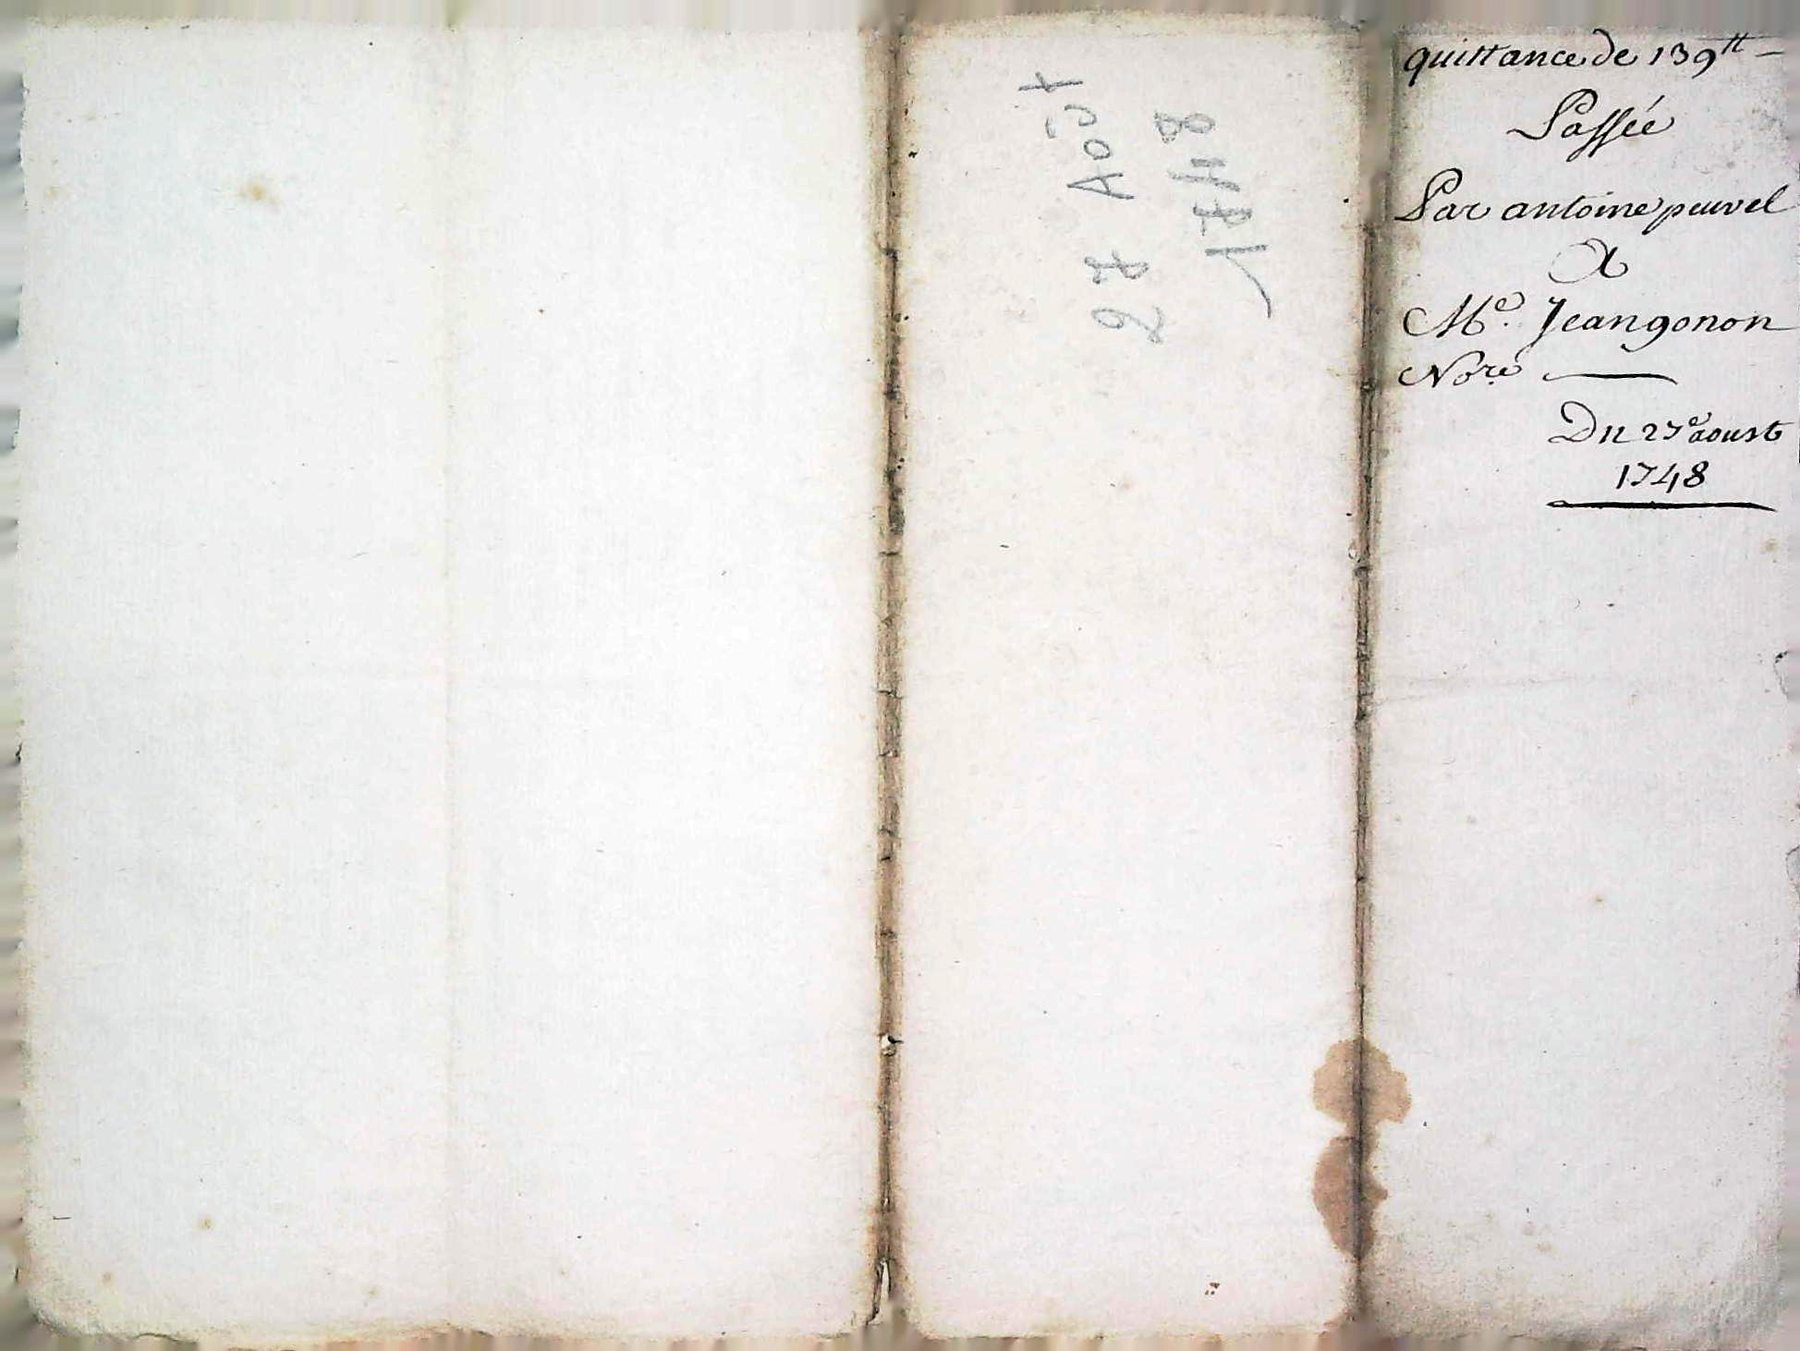 27 Août
1748
quittance de 139tt
Passée
Par antoine peuvel
A
Me. Jean gonon
Nore
Du 27e aoust
1748